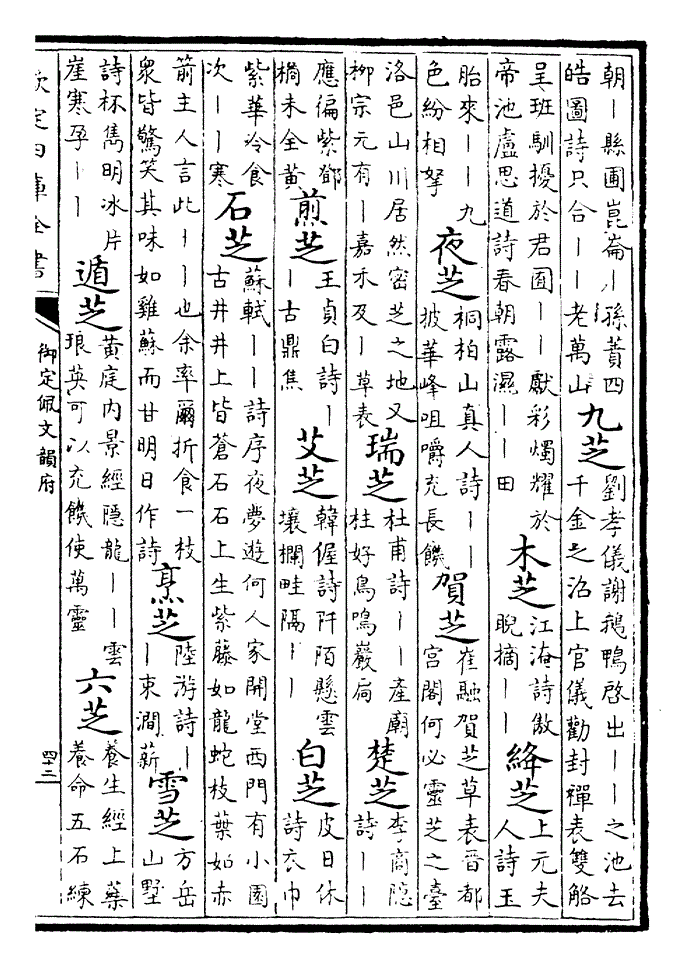 朝丨縣圃崑崙丨孫蕡四
皓圖詩只合丨丨老萬山
九芝
劉孝儀謝鵝鴨啓出丨丨之池去
千金之沼上官儀勸封禪表雙觡
呈班馴擾於君囿丨丨獻彩燭耀於
帝池盧思道詩春朝露濕丨丨田
木芝
江淹詩傲
睨摘丨丨
絳芝
上元夫
人詩玉
胎來丨丨九
色紛相拏
夜芝
桐柏山真人詩丨丨
披華峰咀嚼充長饑
賀芝
崔融賀芝草表晋都
宮閣何必靈芝之臺
洛邑山川居然密芝之地又
柳宗元有丨嘉禾及丨草表
瑞芝
杜甫詩丨丨產廟
柱好鳥鳴巖扃
楚芝
李商隱
詩丨丨
應徧紫鄧
橘未全黄
煎芝
王貞白詩丨
丨古鼎焦
艾芝
韓偓詩阡陌懸雲
壤攔畦隔丨丨
白芝
皮日休
詩衣巾
紫華冷食
次丨丨寒
石芝
蘇軾丨丨詩序夜夢遊何人家開堂西門有小園
古井井上皆蒼石石上生紫藤如龍蛇枝葉如赤
箭主人言此丨丨也余率爾折食一枝
衆皆驚笑其味如雞蘇而甘明日作詩
烹芝
陸游詩丨
丨東澗薪
雪芝
方岳
山墅
詩杯雋明冰片
崖寒孕丨丨
遁芝
黄庭内景經隱龍丨丨雲
琅英可以充饑使萬靈
六芝
養生經上藥
養命五石練
欽定四庫全書
御定佩文韻府
四十二